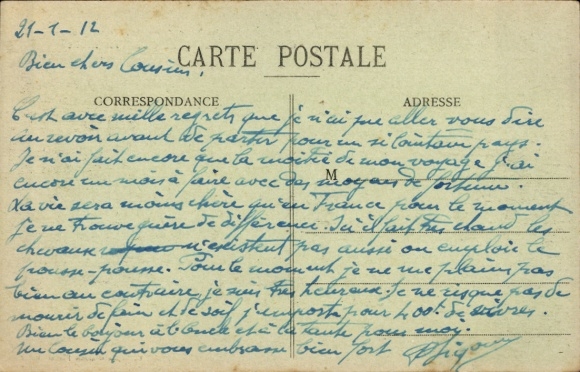 21-1-12
Bien chers Cousins,
CARTE POSTALE
CORRESPONDANCE
ADRESSE
M
C'est avec mille regrets que je n'ai pue aller vous dire
au revoir avant de partir pour un si lointain pays.
Je n'ai fait encore que la moitié de mon voyage j'ai
encore un mois à faire avec des moyens de fortune.
La vie sera moins chère qu'en France pour le moment
je ne trouve guère de différence. Ici il fait très chaud les
chevaux n'existent pas aussi on emploie le
pousse-pousse. Pour le moment je ne me plains pas
bien au contraire, je suis très heureux. Je ne risque pas de
mourir de faim et de soif, j'emporte pour 400f de vivres.
Bien le bonjour à l'oncle et à la tante pour moy.
Un cousin qui vous embrasse bien fort